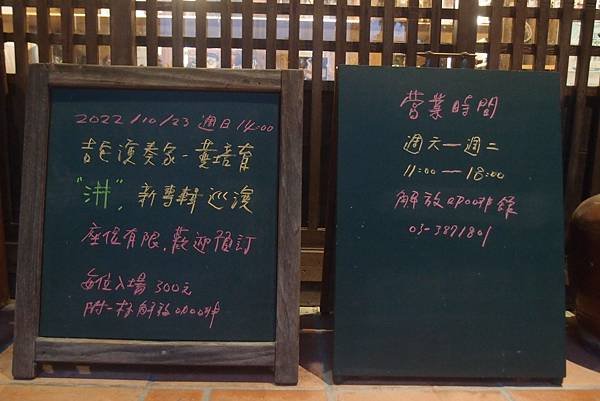 2022/10/23 週日 14:00
吉他演奏家-董培育
"洴", 新專輯巡演
座位有限,歡迎預訂
每位入場 300元
附一杯解放咖啡
營業時間
週六—週二
11:00—18:00
解放咖啡館
03-3871801